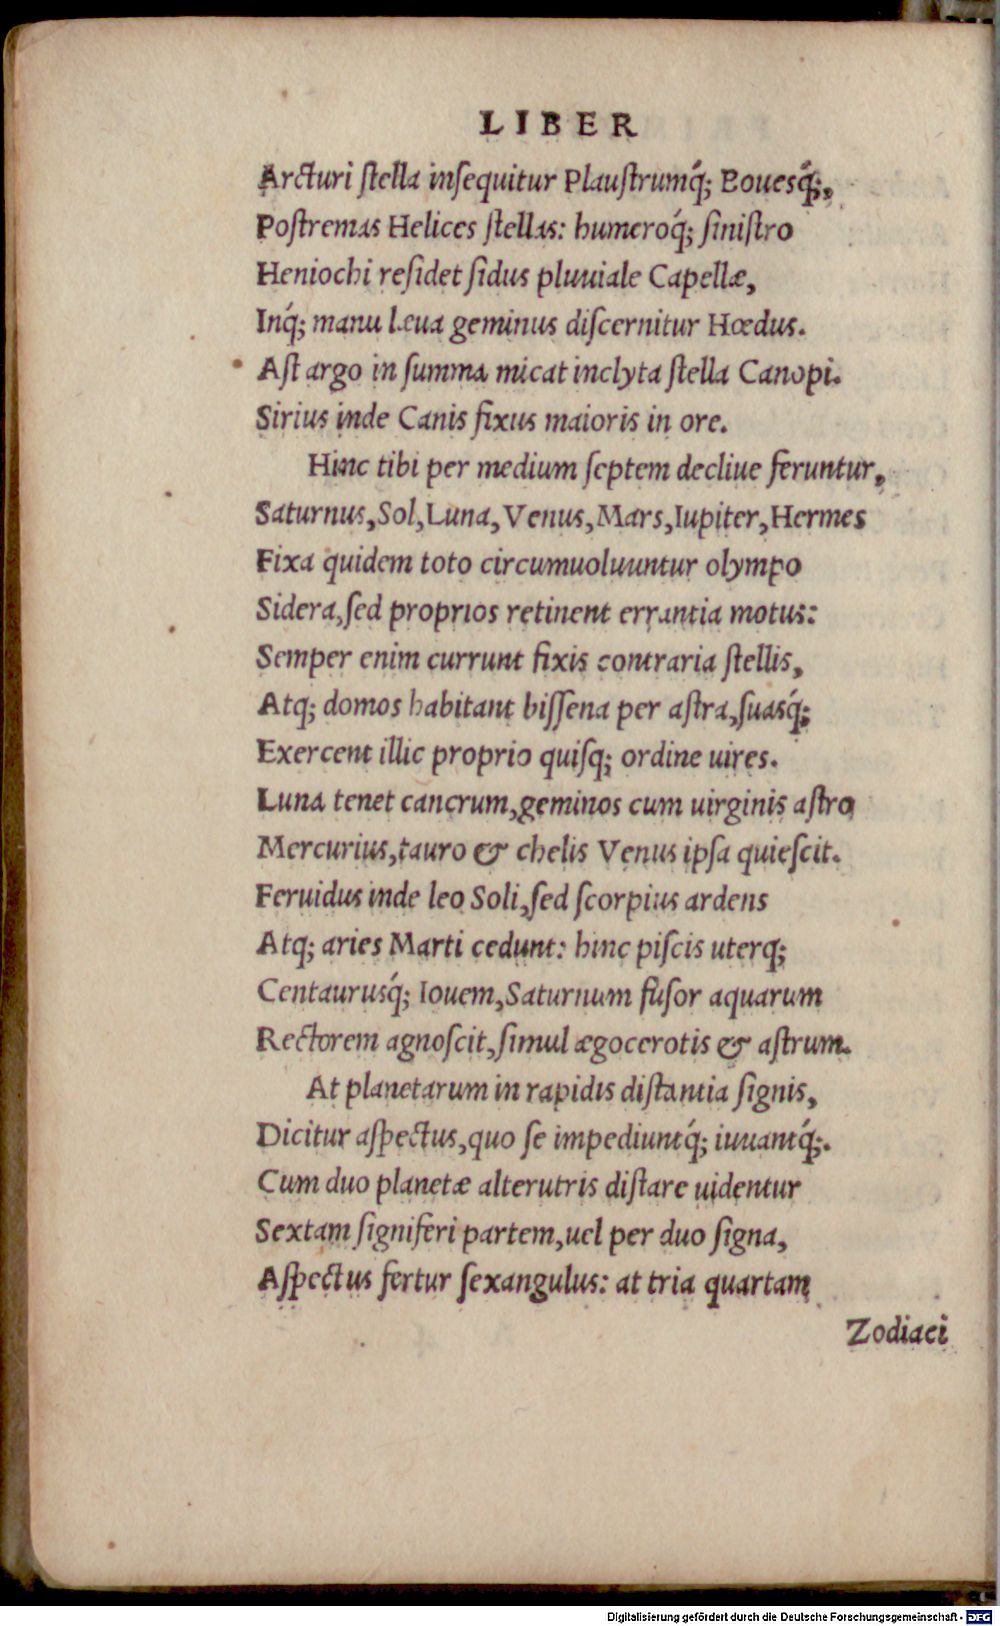 LIBER
Arcturi ſtella inſequitur Plauſtrumq́; Bouesq́;,
Poſtremas Helices ſtellas: humeroq́; ſiniſtro
Heniochi reſidet ſidus pluuiale Capellæ,
Inq́; manu leua geminus diſcernitur Hœdus.
Aſt argo in ſumma micat inclyta ſtella Canopi.
Sirius inde Canis fixus maioris in ore.
Hinc tibi per medium ſeptem decliue feruntur,
Saturnus, Sol, Luna, Venus, Mars, Iupiter, Hermes
Fixa quidem toto circumuoluuntur olympo
Sidera, ſed proprios retinent errantia motus:
Semper enim currunt fixis contraria ſtellis,
Atq; domos habitant biſſena per aſtra, ſuasq́;
Exercent illic proprio quiſq; ordine uires.
Luna tenet cancrum, geminos cum uirginis aſtro
Mercurius, tauro & chelis Venus ipſa quieſcit.
Feruidus inde leo Soli, ſed ſcorpius ardens
Atq; aries Marti cedunt: hinc piſcis uterq;
Centaurusq́; Iouem, Saturnum fuſor aquarum
Rectorem agnoſcit, ſimul ægocerotis & aſtrum.
At planetarum in rapidis diſtantia ſignis,
Dicitur aſpectus, quo ſe impediuntq́; iuuantq́;.
Cum duo planetæ alterutris diſtare uidentur
Sextam ſigniferi partem, uel per duo ſigna,
Aſpectus fertur ſexangulus: at tria quartam
Zodiaci
Digitalisierung gefördert durch die Deutsche Forschungsgemeinschaft - DFG